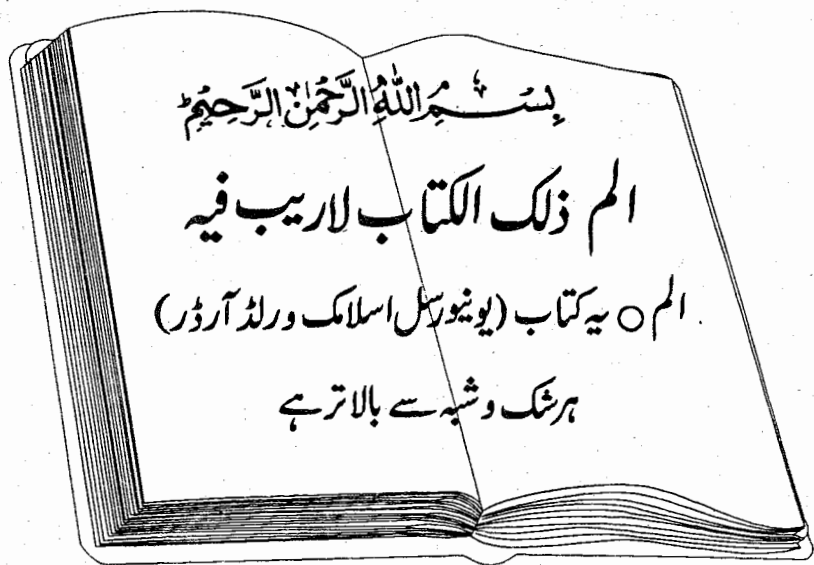 بِسْمِ اللّٰهِ الرَّحْمٰنِ الرَّحِيْمِ
الم ذلک الکتاب لاریب فیہ
الم ○ یہ کتاب (یونیورسل اسلامک ورلڈ آرڈر)
ہر شک و شبہ سے بالا تر ہے